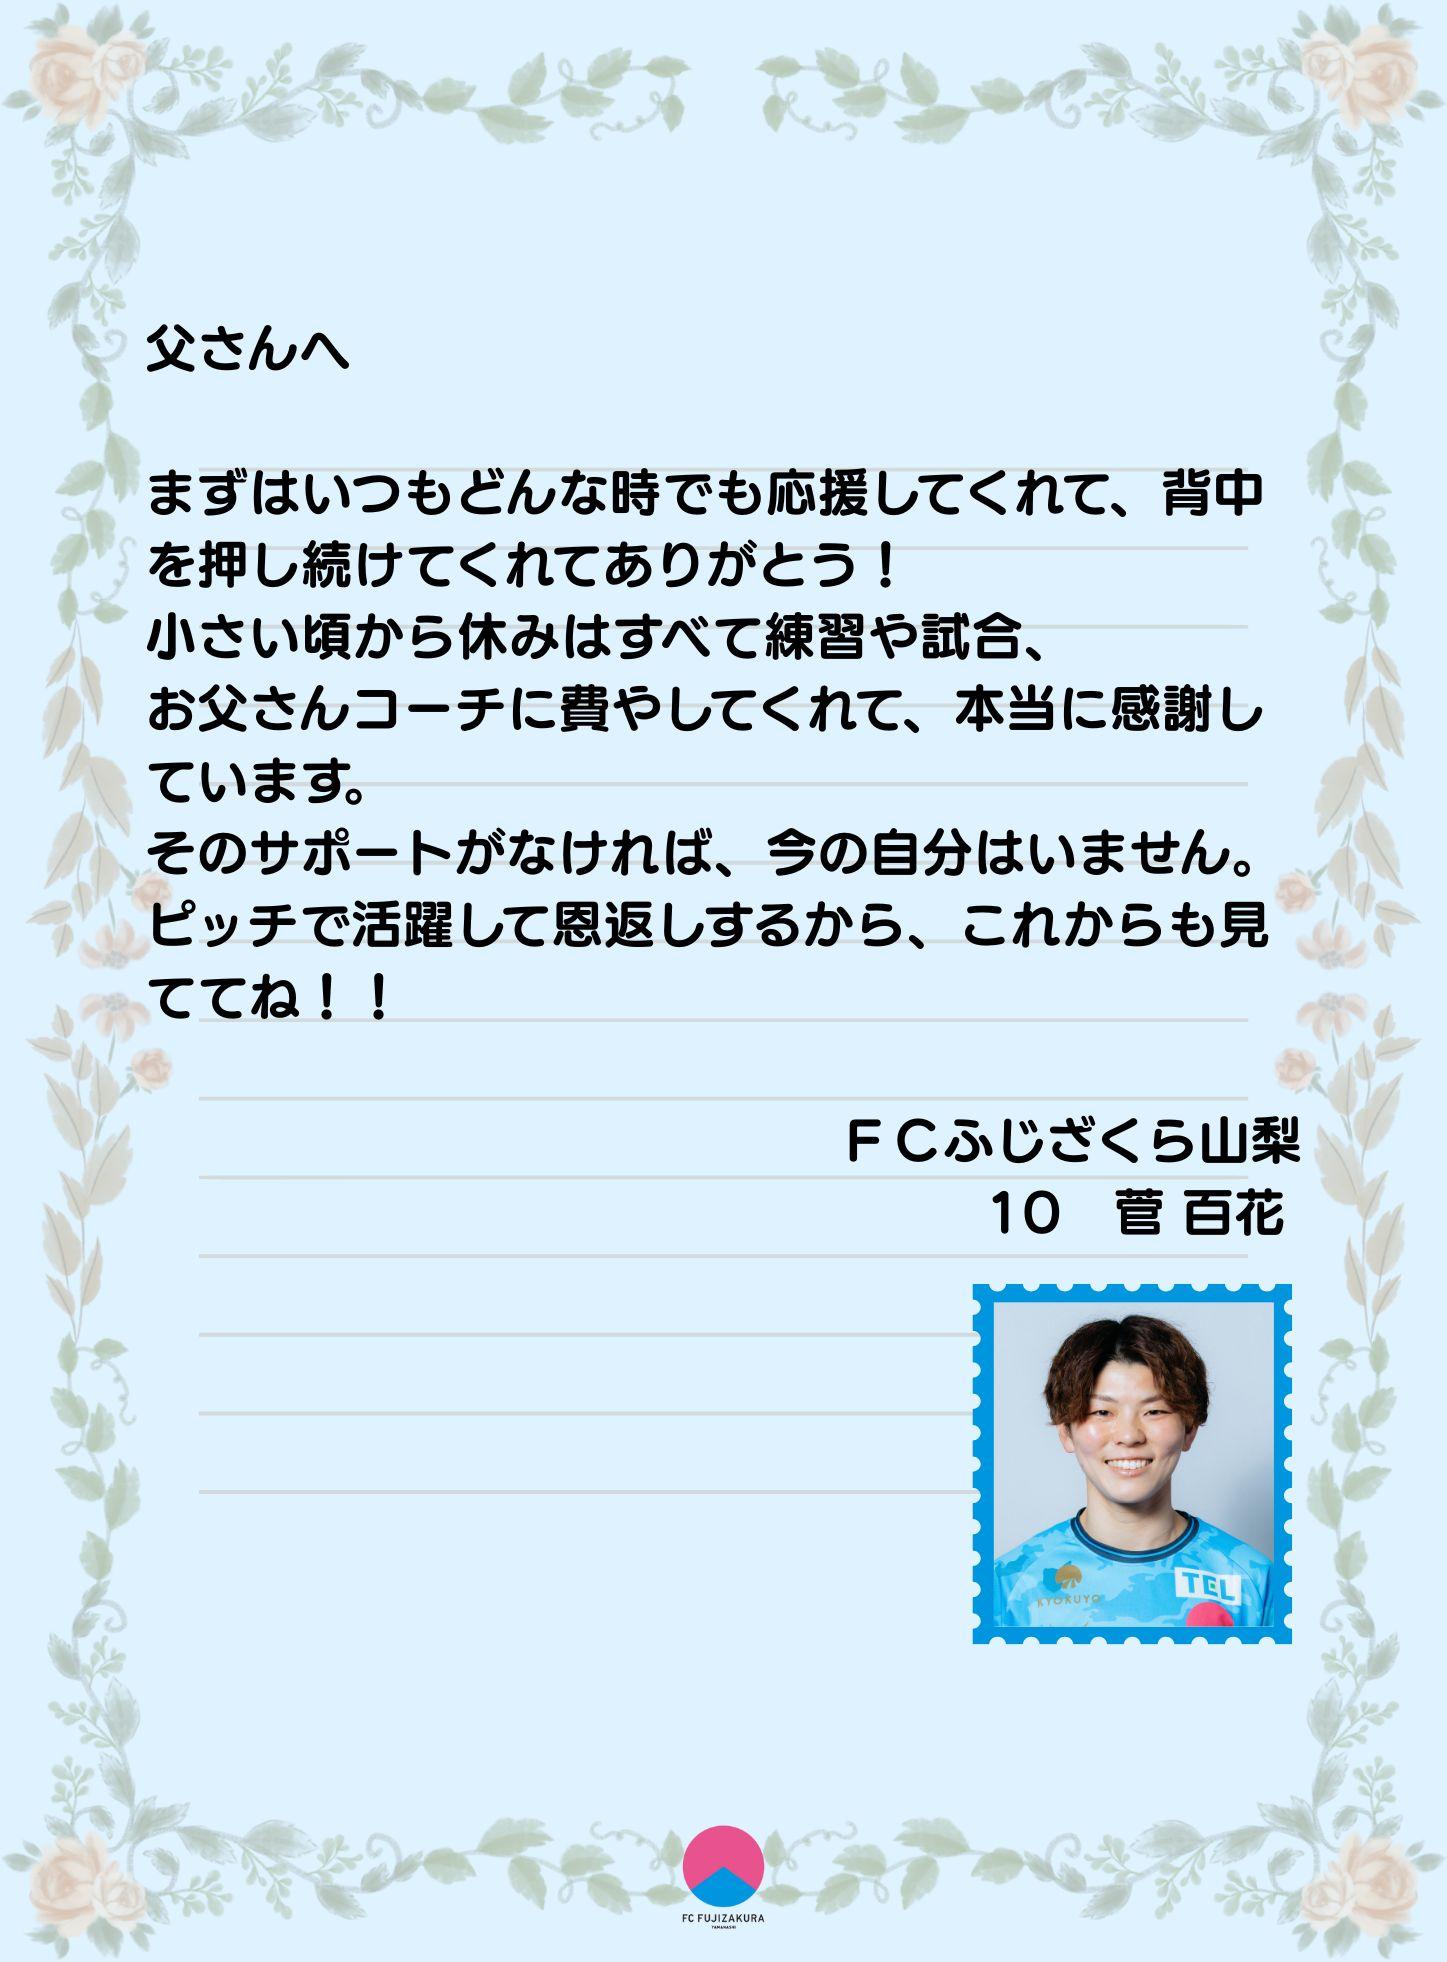 父さんへ
まずはいつもどんな時でも応援してくれて、背中
を押し続けてくれてありがとう！
小さい頃から休みはすべて練習や試合、
お父さんコーチに費やしてくれて、本当に感謝し
ています。
そのサポートがなければ、今の自分はいません。
ピッチで活躍して恩返しするから、これからも見
ててね！！
ＦＣふじざくら山梨
10　菅 百花
KYOKUYO
TEL
FC FUJIZAKURA
YAMANASHI